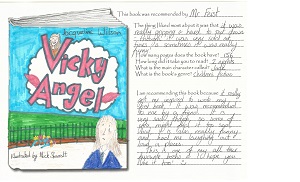 Jacqueline Wilson
Vicky
Angel
Illustrated by Nick Sharratt
This book was recommended by Mr Frost
The thing I liked most about it was that it was
really gripping & hard to put down
- though it was very sad at
times & sometimes it was really
funny
How many pages does the book have? 156
How long did it take you to read? 2 nights
What is the main character called? Jade
What is the book's genre? Children's fiction
I am recommending this book because I really
got me inspired to write my
very best. It was recommended
to me by a friend. It is
very sad though, so some of
you might find it too sad,
but it is also really funny
and had me laughing out
loud in places.
It is one of my all time
favourite books & I hope you
like it too!